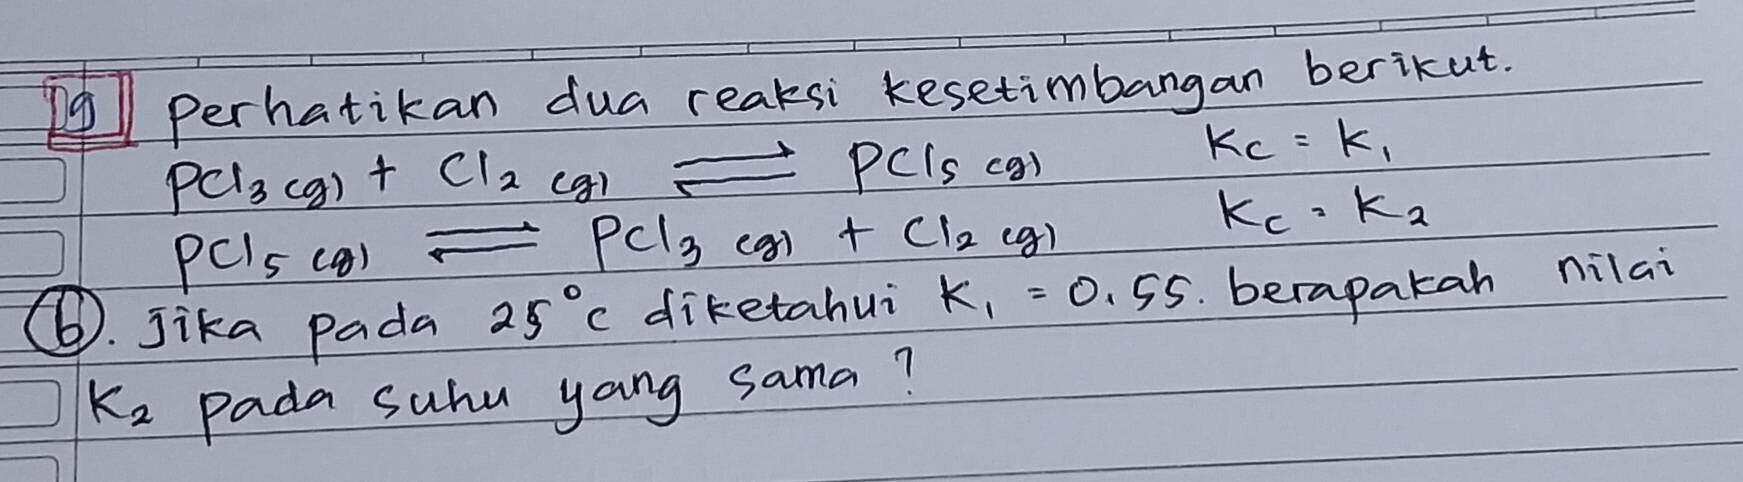 19 Perhatikan dua reaksi kesetimbangan berikut.
PCl₃ (g) + Cl₂ (g) ⇌ PCl₅ (g) Kc = K₁
PCl₅ (g) ⇌ PCl₃ (g) + Cl₂ (g) Kc = K₂
(b). Jika pada 25°C diketahui K₁ = 0.55. berapakah nilai
K₂ pada suhu yang sama?